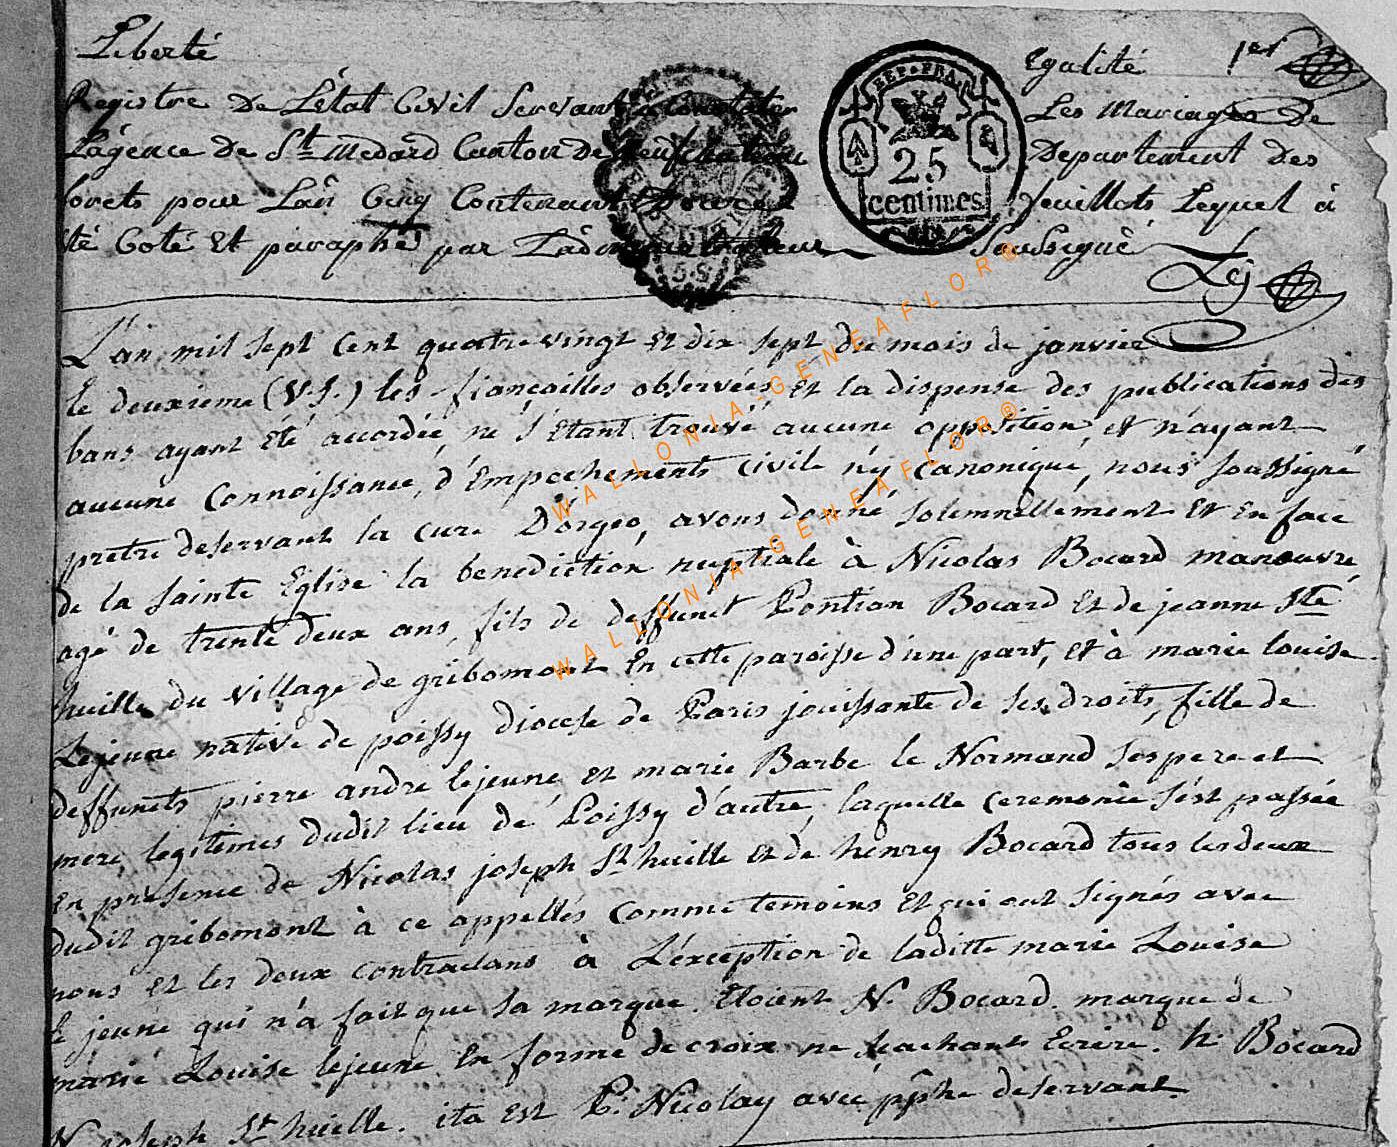 Liberté Egalité 1er
Registre De L'état Civil Servant a Constater Les Mariages De
L'agence De St Medard Canton De Neufchateau Departement Des
forets pour L'an Cinq Contenant Douze feuillets Lequel à
été Coté Et paraphé par L'administrateur Soussigné
REP. FRA.
25
centimes
5. S.
Lej
L'an mil sept Cent quatre vingt Et dix sept du mois de janvier
le deuxieme (V.S.) les fiançailles observées Et la dispense des publications des
bans ayant été accordée, ne s'étant trouvé aucune opposition, et n'ayant
aucune Connoissance, d'Empechements civile n'y canonique, nous soussigné
pretre deservant la cure D'orgeo, avons donné solemnellement Et En face
de la sainte Eglise la benediction nuptiale à Nicolas Bocard manouvre
agé de trente deux ans, fils de deffunct Pontian Bocard Et de jeanne Ste
huille du village de gribomont En cette paroisse d'une part, Et à marie louise
Lejeune native de poissy diocese de Paris jouissante de ses droits, fille de
deffuncts pierre andre lejeune et marie Barbe le Normand ses pere et
mere legitimes dudit lieu de Poissy d'autre, laquelle ceremonie s'est passée
En presence de Nicolas joseph St huille et de henry Bocard tous les deux
dudit gribomont à ce appellés Comme temoins Et qui ont signés avec
nous et les deux contractans à L'exception de laditte marie Louise
le jeune qui n'a fait que sa marque. Etoient N. Bocard. marque de
marie Louise lejeune En forme de croix ne sachant Ecrire. h. Bocard
N joseph St huille. ita est P. Nicolay avec pphe deservant.
WALLONIA-GENEAFLOR®
WALLONIA-GENEAFLOR®